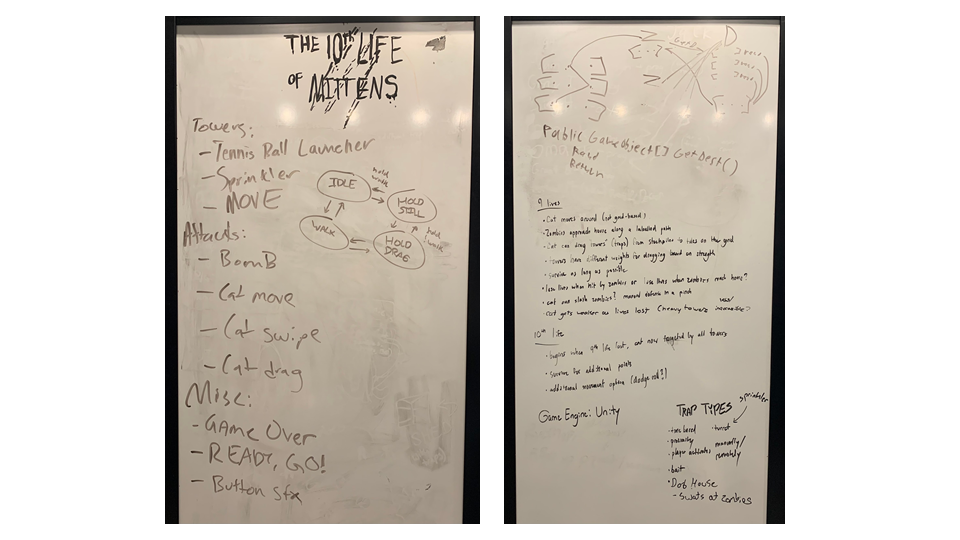 THE 10TH LIFE
OF MITTENS
Towers:
- Tennis Ball Launcher
- Sprinkler
- MOVE
IDLE
hold
walk
HOLD
STILL
WALK
HOLD
DRAG
hold
walk
Attacks:
- BomB
- Cat move
- Cat swipe
- Cat drag
Misc:
- GAME Over
- READY, GO!
- Button sfx
D
Public GameObject[] GetDest()
Return
9 lives
• Cat moves around (not grid-based)
• Zombies approach home along a labeled path
• Cat can drag towers (traps) from stockpiles to tiles on the grid
• towers have different weights for dragging based on strength
• survive as long as possible
• lose lives when hit by zombies or lose lives when zombies reach home?
• cat can slash zombies? manual defense in a pinch
• cat gets weaker as lives lost (heavy towers immovable?)
10th life
• begins when 9th life lost, cat now targeted by all towers
• survive for additional points
• additional movement option (dodge roll?)
Game Engine: Unity
TRAP TYPES
sprinkler
• timed
• turret
• proximity
• player activates
manually/
remotely
• bait
• Dog House
- Swats at zombies